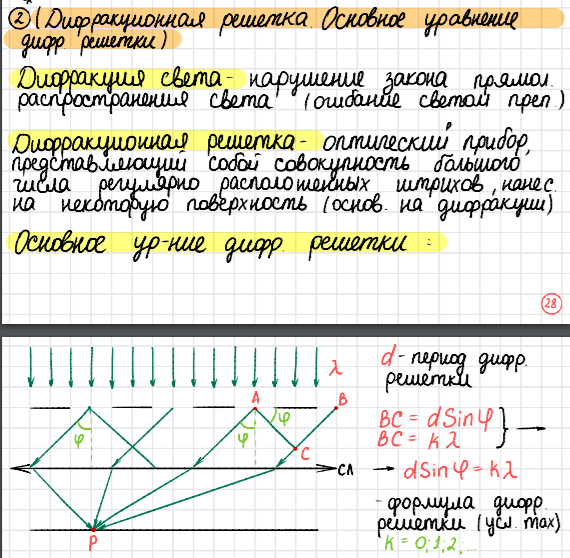 ② (Дифракционная решетка. Основное уравнение
дифр решетки)
Дифракция света- нарушение закона прямол.
распространения света (огибание светом преп.)
Дифракционная решетка- оптический прибор,
представляющий собой совокупность большого
числа регулярно расположенных штрихов, нанес.
на некоторую поверхность (основ. на дифракции)
Основное ур-ние дифр. решетки :
28
λ
d - период дифр.
решетки
A
B
φ
φ
φ
C
BC = d Sin φ
BC = k λ
СЛ
d Sin φ = k λ
P
- формула дифр.
решетки (усл. max)
k = 0; 1; 2; ...